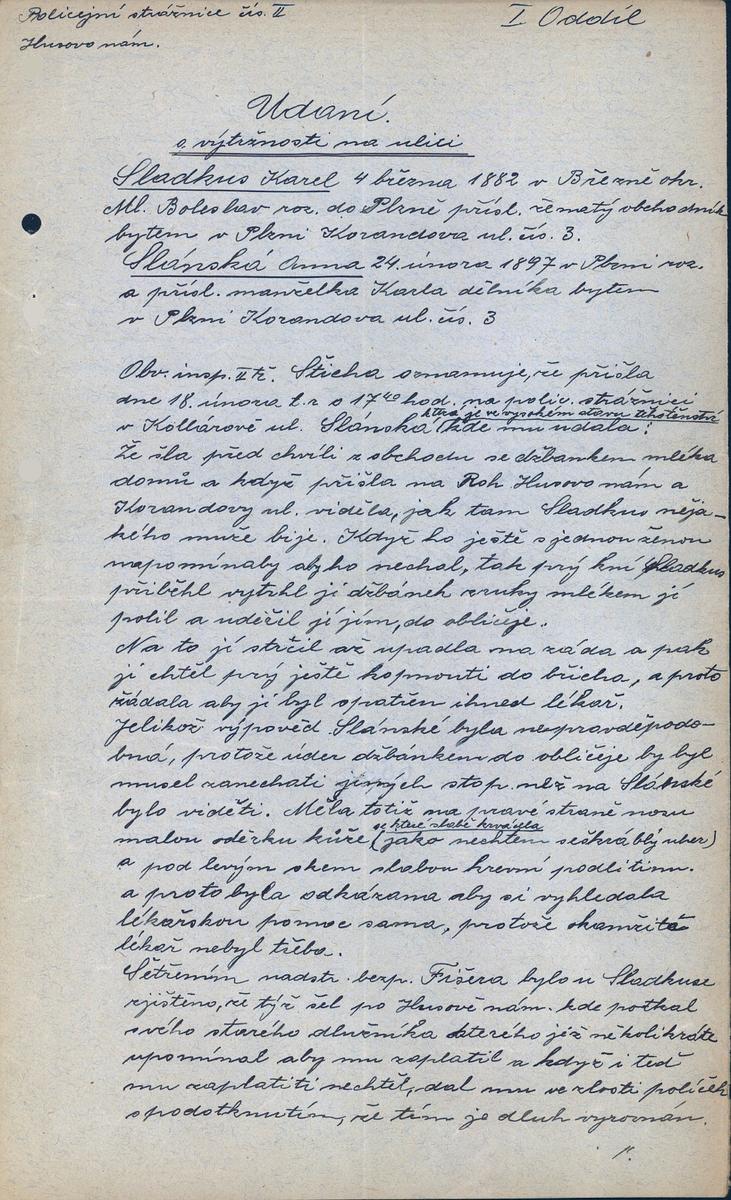 Policejní strážnice čís. II
I. Oddíl
Husovo nám.
Udaní.
o výtržnosti na ulici
Sladkus Karel 4 března 1882 v Březně okr.
Ml. Boleslav roz. do Plzně přísl. ženatý obchodník
bytem v Plzni Korandova ul. čís. 3.
Slánská Anna 24. února 1897 v Plzni roz.
a přísl. manželka Karla dělníka bytem
v Plzni Korandova ul. čís. 3
Obv. insp. II tř. Šticha oznamuje, že přišla
dne 18. února t. r. o 17⁴⁰ hod. na polic. strážnici
která je ve vysokém stavu těhotenství
v Kollárově ul. Slánská kde mu udala:
Že šla před chvílí z obchodu se džbánkem mléka
domů a když přišla na Roh Husovo nám a
Korandovy ul. viděla, jak tam Sladkus něja-
kého muže bije. Když ho ještě s jednou ženou
napomínaly aby ho nechal, tak prý k ní Sladkus
přiběhl vytrhl jí džbánek z ruky mlékem jí
polil a udeřil jí jím, do obličeje.
Na to jí strčil až upadla na záda a pak
jí chtěl prý ještě kopnouti do břicha, a proto
žádala aby jí byl opatřen ihned lékař.
Jelikož výpověd Slánské byla nepravděpodo-
bná, protože úder džbánkem do obličeje by byl
musel zanechati jiných stop. než na Slánské
bylo viděti. Měla totiž na pravé straně nosu
ze které slabě krvácela
malou oděrku kůže (jako nechtem seškrábly uher)
a pod levým okem slabou krevní podlitinu.
a proto byla odkázana aby si vyhledala
lékařskou pomoc sama, protože okamžitě
lékař nebyl třeba.
Šetřením nadstr. bezp. Fišera bylo u Sladkuse
zjištěno, že týž šel po Husově nám. kde potkal
svého starého dlužníka kterého již několikráte
upomínal aby mu zaplatil a když i teď
mu zaplatiti nechtěl, dal mu ve zlosti políček
s podotknutím, že tím je dluh vyrovnán.